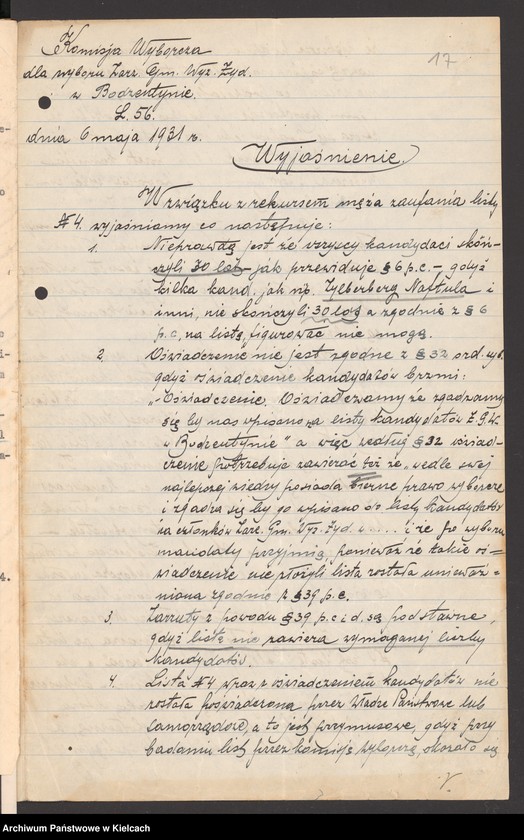 17
Komisja Wyborcza
dla wyboru Zarz. Gm. Wyz. Żyd.
w Bodzentynie.
L. 56.
dnia 6 maja 1931 r.
Wyjaśnienie.
W związku z rekursem męża zaufania listy
№ 4. wyjaśniamy co następuje:
1. Nieprawdą jest że wszyscy kandydaci skoń-
czyli 30 lat - jak przewiduje § 6 p. c. - gdyż
kilka kand. jak np. Zylberberg Naftula i
inni, nie skończyli 30 lat a zgodnie z § 6
p. c, na listę figurować nie mogą.
2. Oświadczenie nie jest zgodne z § 32 ord. wyb.
gdyż oświadczenie kandydatów brzmi:
"Oświadczenie, Oświadczamy że zgadzamy
się by nas wpisano na listy kandydatów Z. G. W.
w Bodzentynie" a więc według § 32 oświad-
czenie potrzebuje zawierać też że "wedle swej
najlepszej wiedzy posiada bierne prawo wyborcze
i zgadza się by go wpisano do listy kandydatów
na członków Zarz. Gm. Wyz. Żyd. w .... i że po wyborze
mandaty przyjmią, ponieważ że takie oś-
wiadczenie nie złożyli lista została unieważ-
niona zgodnie z § 39 p. c.
3. Zarzuty z powodu § 39 p. c i d. są podstawne,
gdyż listę nie zawiera wymaganej liczby
kandydatów.
4. Lista № 4 wraz z oświadczeniem kandydatów nie
została poświadczona przez władze Państwowe lub
samorządowe, a to jest przymusowe, gdyż przy
badaniu list przez komisję wyborczą, okazało się
Archiwum Państwowe w Kielcach